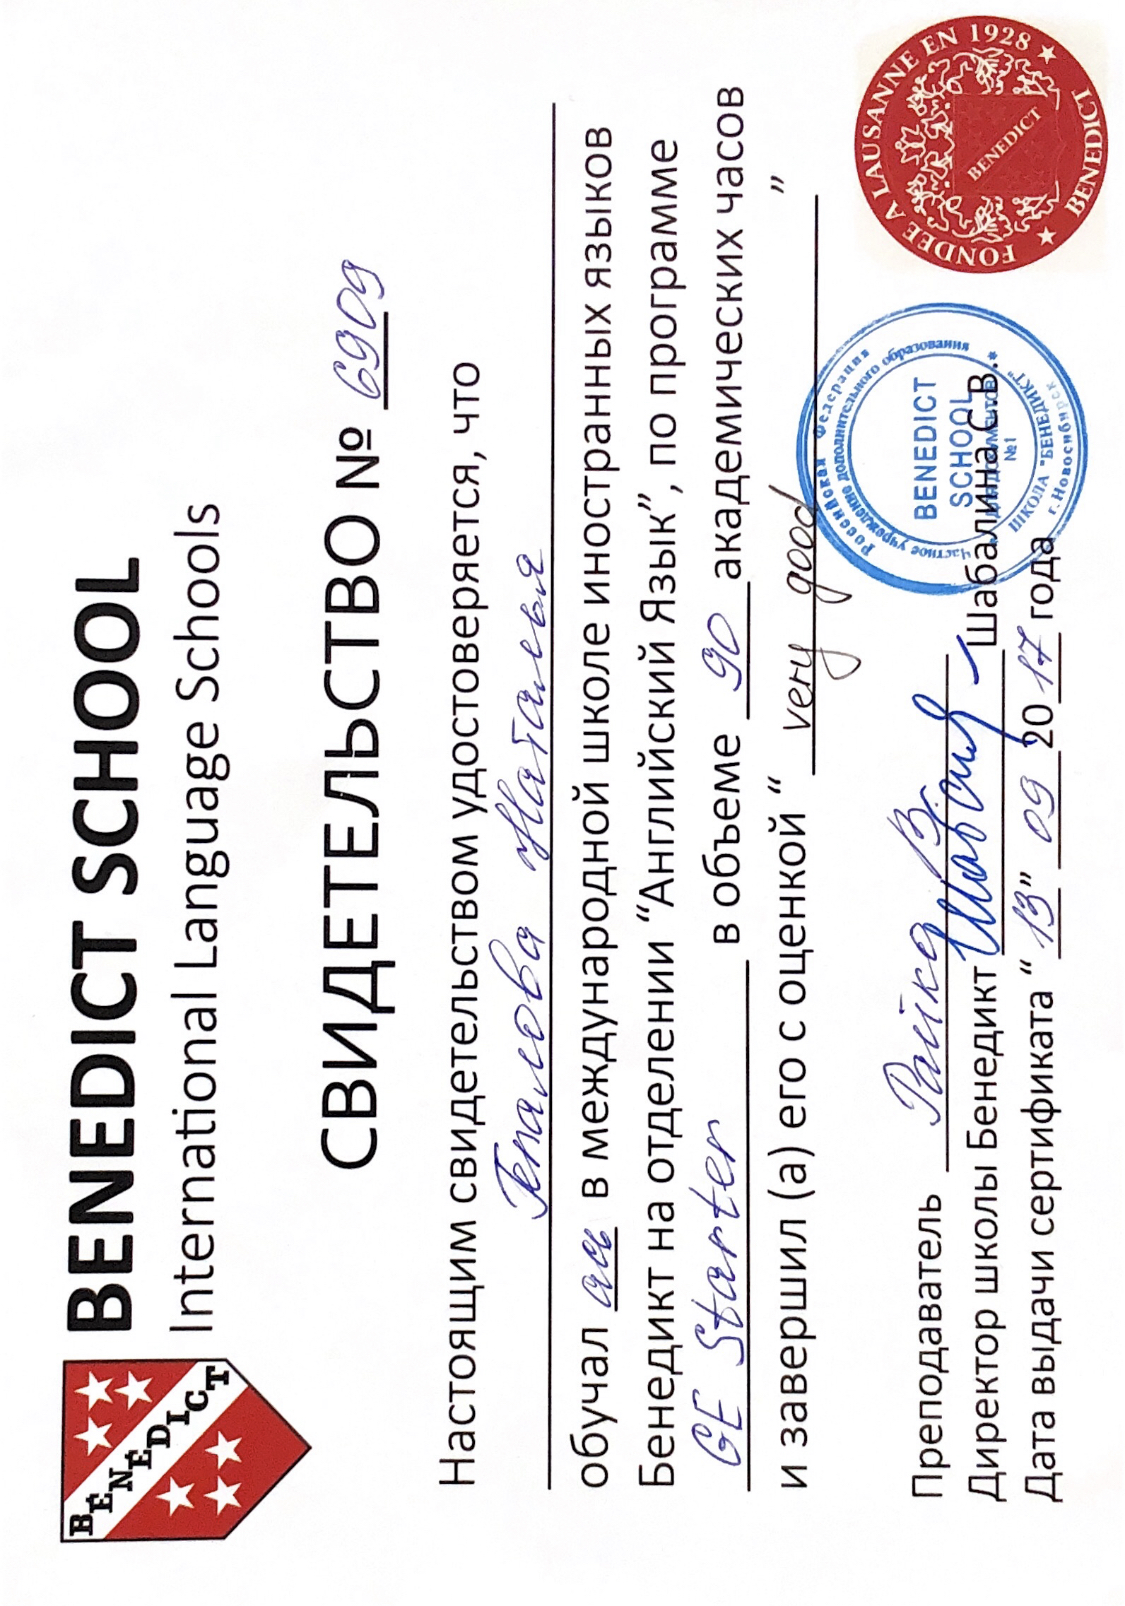 BÉNÉDICT
BENEDICT SCHOOL
International Language Schools
СВИДЕТЕЛЬСТВО № 6909
Настоящим свидетельством удостоверяется, что
Гепалова Наталья
обучал ась в международной школе иностранных языков
Бенедикт на отделении “Английский Язык”, по программе
GE Starter в объеме 90 академических часов
и завершил (а) его с оценкой “ very good ”
Преподаватель Райка В.
Директор школы Бенедикт Шабалина С.В.
Дата выдачи сертификата “13” 09 2017 года
Российская Федерация
Частное учреждение дополнительного образования
BENEDICT
SCHOOL
ДЛЯ ДОКУМЕНТОВ
№1
ШКОЛА "БЕНЕДИКТ"
г. Новосибирск
FONDEE A LAUSANNE EN 1928
BENEDICT
BENEDICT